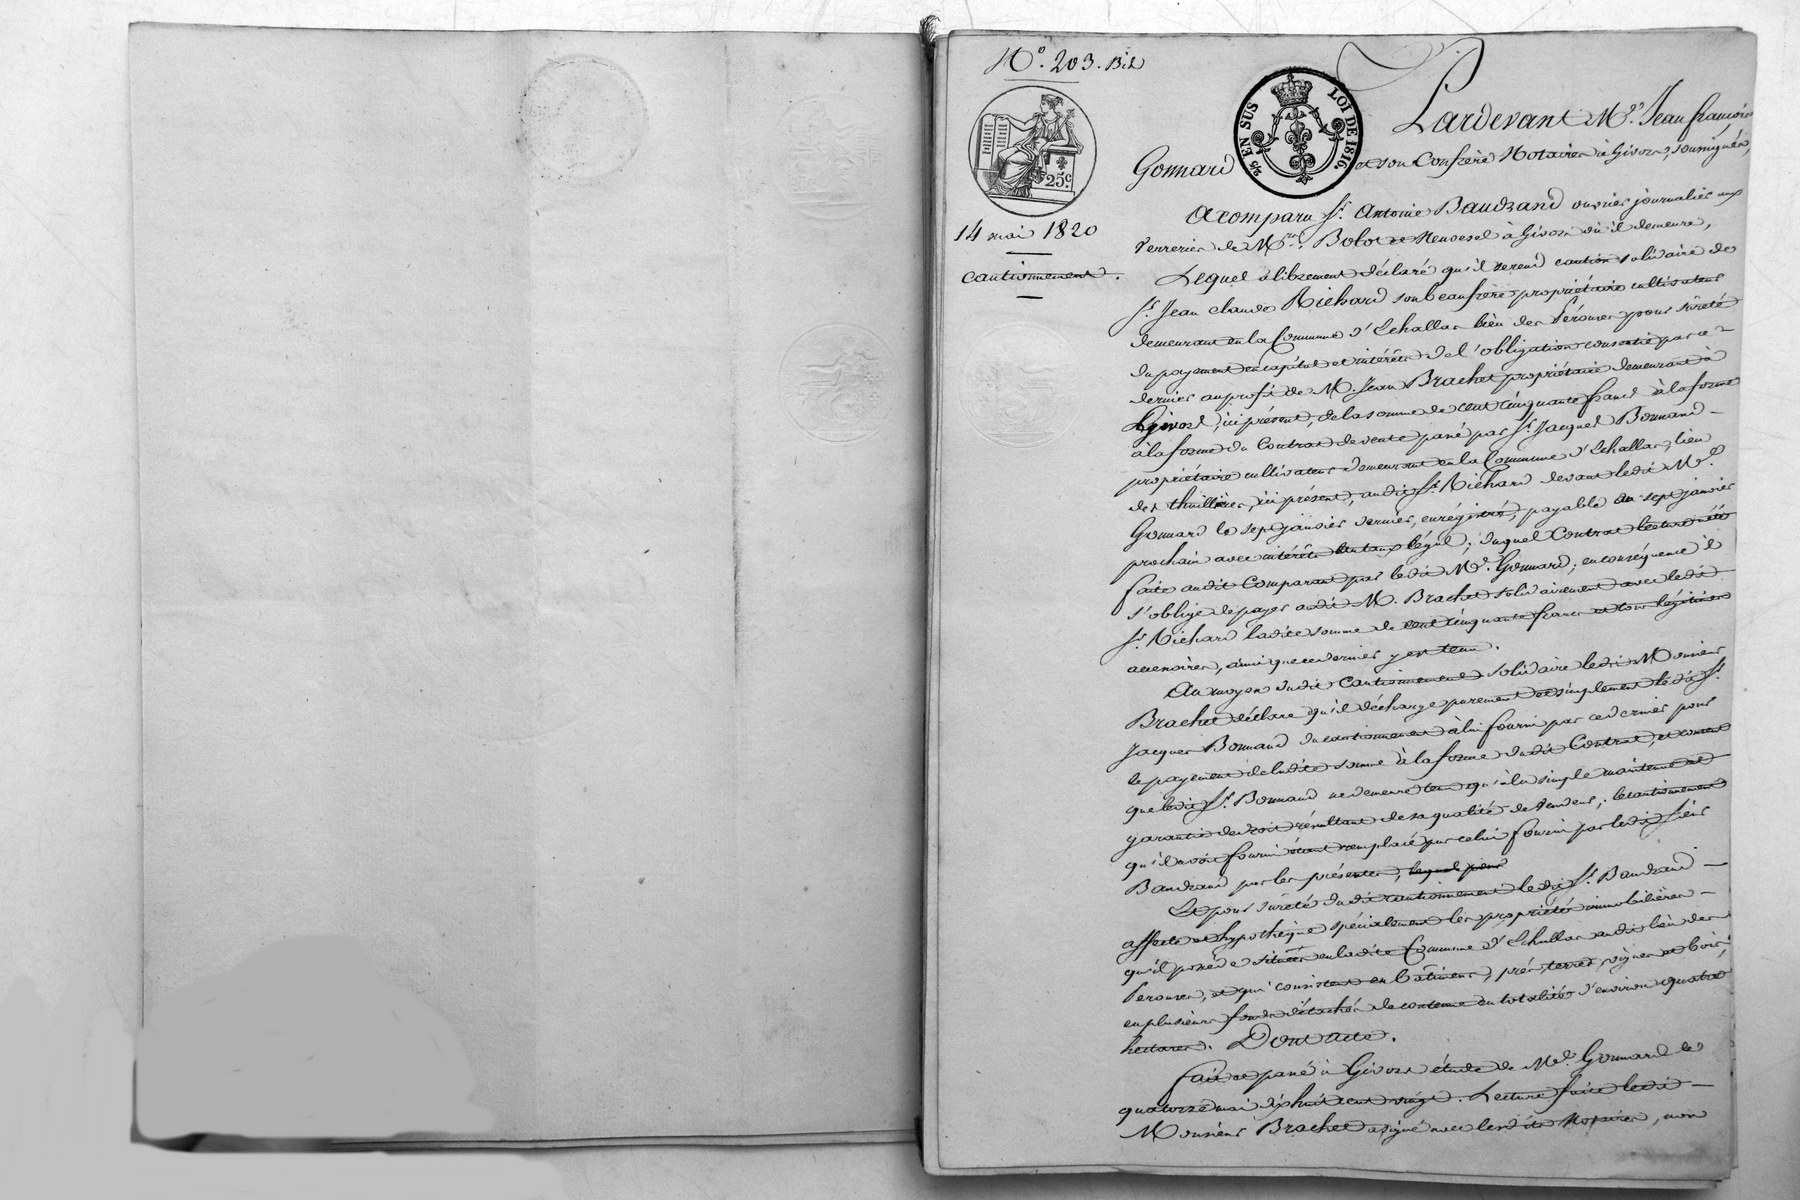 N.º 203. Bis
25ᶜ
¼ EN SUS LOI DE 1816.
14 mai 1820
cautionnement.
Pardevant M.e Jean françois
Gonnard et son Confrère Notaires à Givors, soussignés,
A comparu S.r Antoine Baudrand ouvrier journalier aux
verreries de M.rs Bolot et Neuvesel à Givors où il demeure,
Lequel a librement déclaré qu'il se rend caution solidaire de
S.r Jean claude Richard son beaufrère propriétaire cultivateur
demeurant en la Commune d'Echallas lieu des Pérouses pour sûreté
du payement en capital et intérêts de l'obligation consentie par ce
dernier au profit de M. Jean Brachet propriétaire demeurant à
Givors, ici présent, de la somme de cent cinquante francs à la forme
à la forme du Contrat de vente passé par S.r Jacques Bonnand
propriétaire cultivateur demeurant en la Commune d'Echallas, lieu
des thuillières, ici présent, audit S.r Richard devant ledit M.e
Gonnard le sept janvier dernier, enrégistré, payable au sept janvier
prochain avec intérêts au taux légal; duquel Contrat lecture a été
faite audit Comparant par ledit M.e Gonnard; en conséquence il
s'oblige de payer audit M. Brachet solidairement avec ledit
S.r Richard ladite somme de cent cinquante francs et tous légitimes
accessoires, ainsi que ce dernier y est tenu.
Au moyen dudit Cautionnement solidaire ledit Monsieur
Brachet déclare qu'il décharge purement et simplement ledit S.r
Jacques Bonnand du cautionnement à lui fourni par ce dernier pour
le payement de ladite somme à la forme dudit Contrat, et consent
que ledit S.r Bonnand ne demeure tenu qu'à la simple maintenue et
garantie de droit résultant de sa qualité de Vendeur; le cautionnement
qu'il avoit fourni étant remplacé par celui fourni par ledit Sieur
Baudrand par les présentes,
Et pour sûreté dudit cautionnement ledit S.r Baudrand
affecte et hypothèque spécialement les propriétés immobilières
qu'il possède situées en ladite Commune d'Echallas audit lieu des
Perouses, et qui consistent en bâtimens, prés, terres, vignes et bois,
en plusieurs fonds détachés de contenue en totalité d'environ quatre
hectares. Dont acte.
fait et passé à Givors étude de M.e Gonnard le
quatorze mai dix huit cent vingt. Lecture faite ledit
Monsieur Brachet a signé avec lesdits Notaires, non